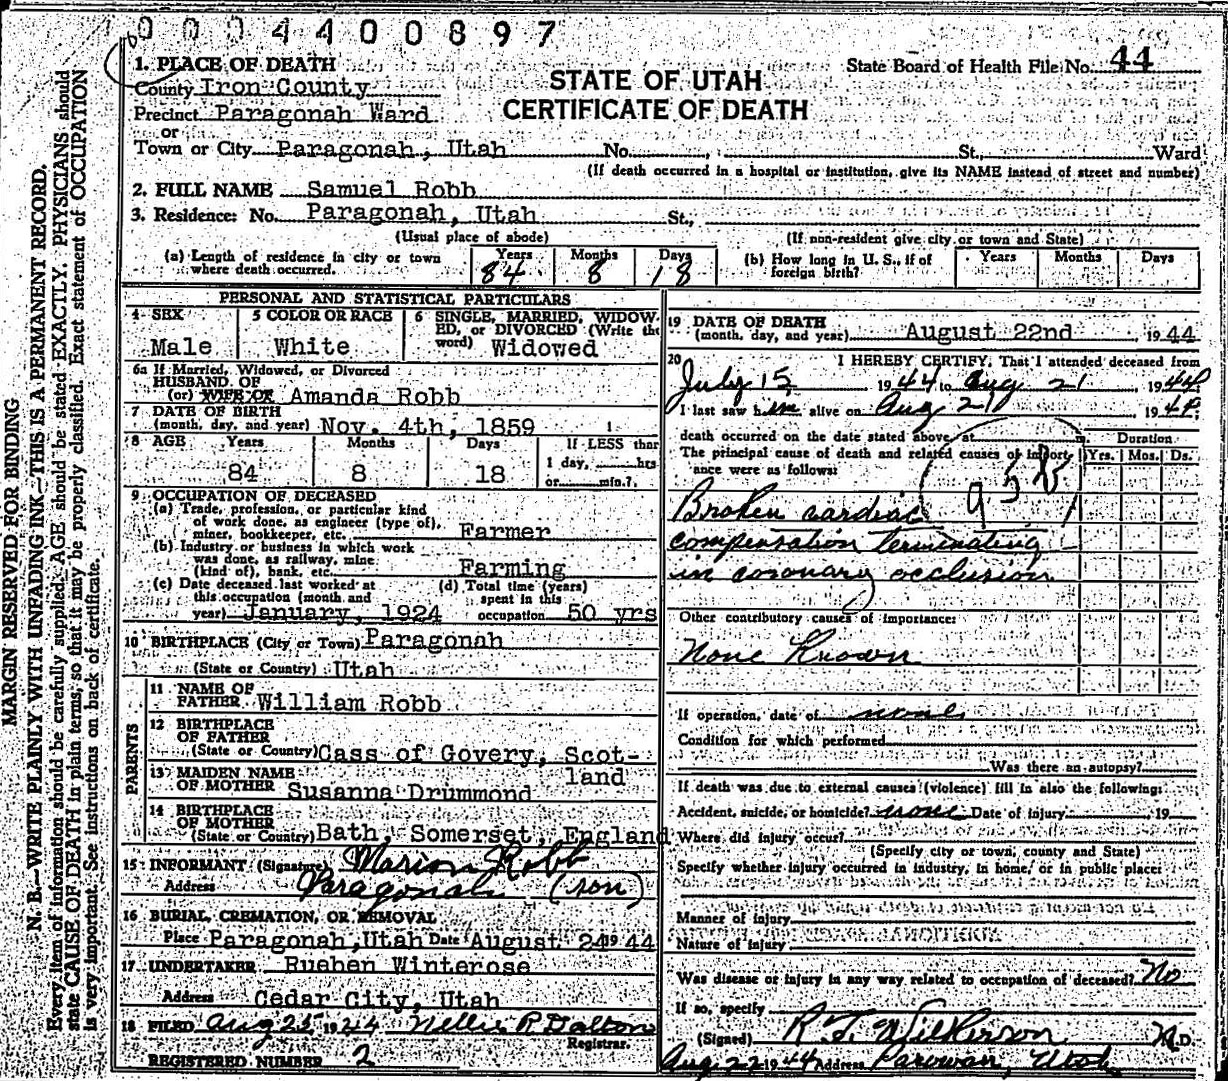 0 0 4 4 0 0 8 9 7
1. PLACE OF DEATH
County Iron County
Precinct Paragonah Ward
or
Town or City Paragonah, Utah No. , St., Ward
(If death occurred in a hospital or institution, give its NAME instead of street and number)
STATE OF UTAH
CERTIFICATE OF DEATH
State Board of Health File No. 44
2. FULL NAME Samuel Robb
3. Residence: No. Paragonah, Utah St.,
(Usual place of abode) (If non-resident give city or town and State)
(a) Length of residence in city or town where death occurred. Years 84 Months 8 Days 18
(b) How long in U. S., if of foreign birth? Years Months Days
PERSONAL AND STATISTICAL PARTICULARS
4 SEX Male
5 COLOR OR RACE White
6 SINGLE, MARRIED, WIDOW-
ED, or DIVORCED (Write the
word) Widowed
6a If Married, Widowed, or Divorced
HUSBAND OF
(or) WIFE OF Amanda Robb
7 DATE OF BIRTH
(month, day, and year) Nov. 4th, 1859
8 AGE Years Months Days If LESS than
84 8 18 1 day, hrs
or min.?
9 OCCUPATION OF DECEASED
(a) Trade, profession, or particular kind
of work done, as engineer (type of),
miner, bookkeeper, etc. Farmer
(b) Industry or business in which work
was done, as railway, mine
(kind of), bank, etc. Farming
(c) Date deceased last worked at
this occupation (month and
year) January, 1924
(d) Total time (years)
spent in this
occupation 50 yrs
10 BIRTHPLACE (City or Town) Paragonah
(State or Country) Utah
PARENTS
11 NAME OF
FATHER William Robb
12 BIRTHPLACE
OF FATHER
(State or Country) Cass of Govery, Scot-
land
13 MAIDEN NAME
OF MOTHER Susanna Drummond
14 BIRTHPLACE
OF MOTHER
(State or Country) Bath, Somerset, England
15 INFORMANT (Signature) Marion Robb
Address Paragonah (son)
16 BURIAL, CREMATION, OR REMOVAL
Place Paragonah, Utah Date August 24 19 44
17 UNDERTAKER Rueben Winterose
Address Cedar City, Utah
18 FILED Aug 25 1944 Nellie R Dalton
Registrar.
REGISTERED NUMBER 2
19 DATE OF DEATH
(month, day, and year) August 22nd , 19 44
20 I HEREBY CERTIFY, That I attended deceased from
July 15, 1944 to Aug 21, 1944
I last saw him alive on Aug 21 1944
death occurred on the date stated above, at m. Duration
The principal cause of death and related causes of import- Yrs. Mos. Ds.
ance were as follows:
Broken cardiac
compensation terminating
in coronary occlusion
Other contributory causes of importance:
None Known
If operation, date of none
Condition for which performed
Was there an autopsy?
If death was due to external causes (violence) fill in also the following:
Accident, suicide, or homicide? none Date of injury , 19
Where did injury occur?
(Specify city or town, county and State)
Specify whether injury occurred in industry, in home, or in public place:
Manner of injury
Nature of injury
Was disease or injury in any way related to occupation of deceased? No
If so, specify
(Signed) R. T. Wilkerson M.D.
Aug 22 1944 Address Parowan, Utah
MARGIN RESERVED FOR BINDING
N. B.—WRITE PLAINLY WITH UNFADING INK—THIS IS A PERMANENT RECORD.
Every item of information should be carefully supplied. AGE should be stated EXACTLY. PHYSICIANS should
state CAUSE OF DEATH in plain terms, so that it may be properly classified. Exact statement of OCCUPATION
is very important. See instructions on back of certificate.